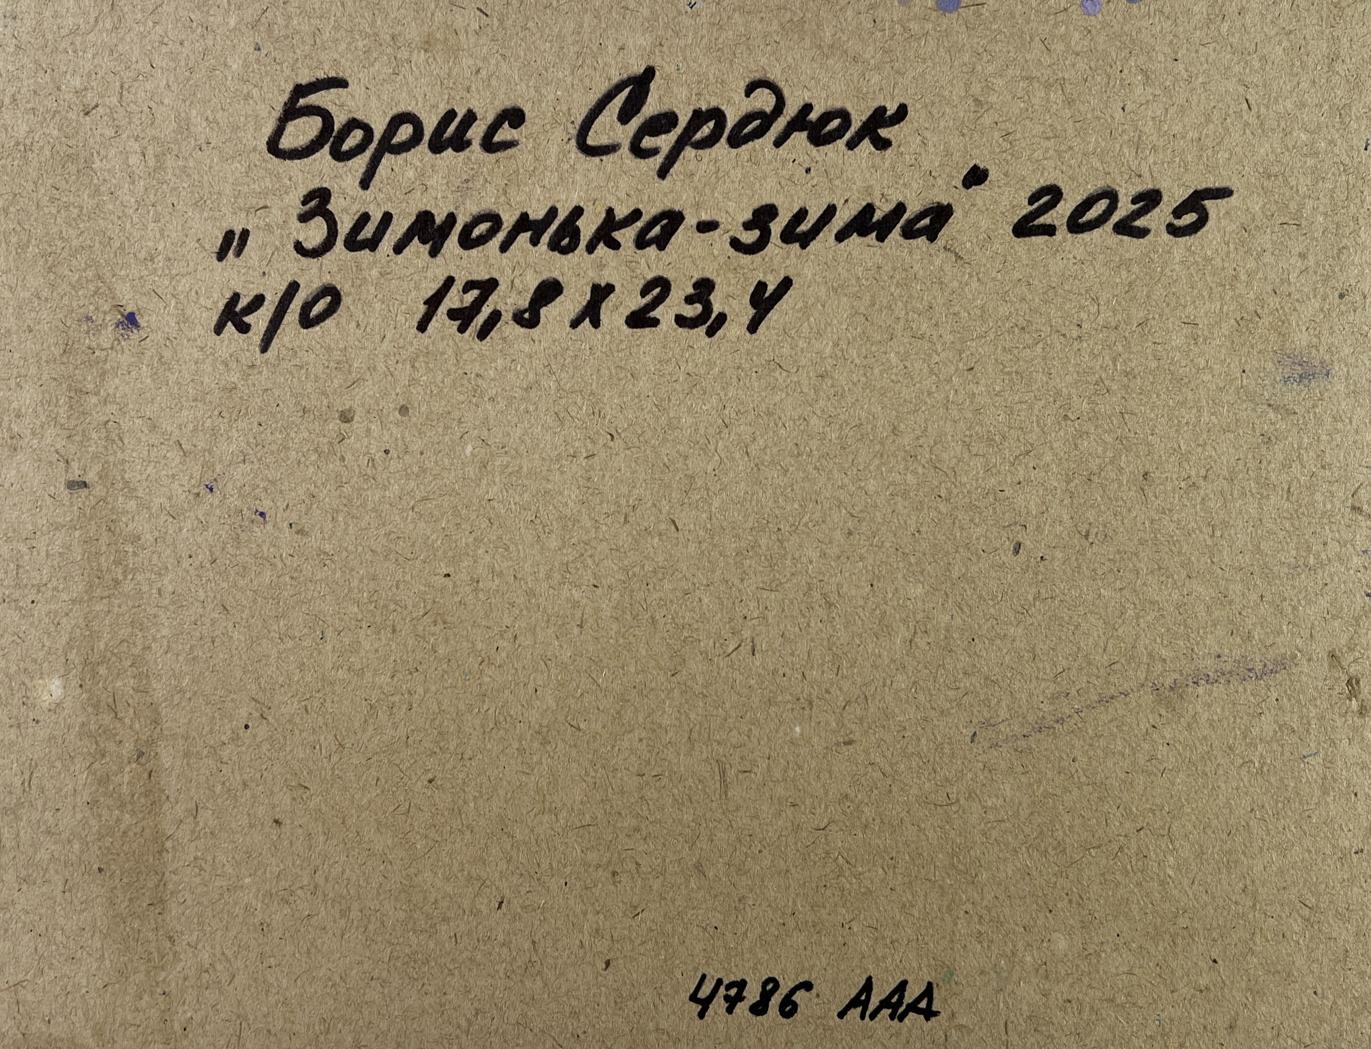 Борис Сердюк
„Зимонька-зима" 2025
к/о 17,8 х 23,4
4786 ААА